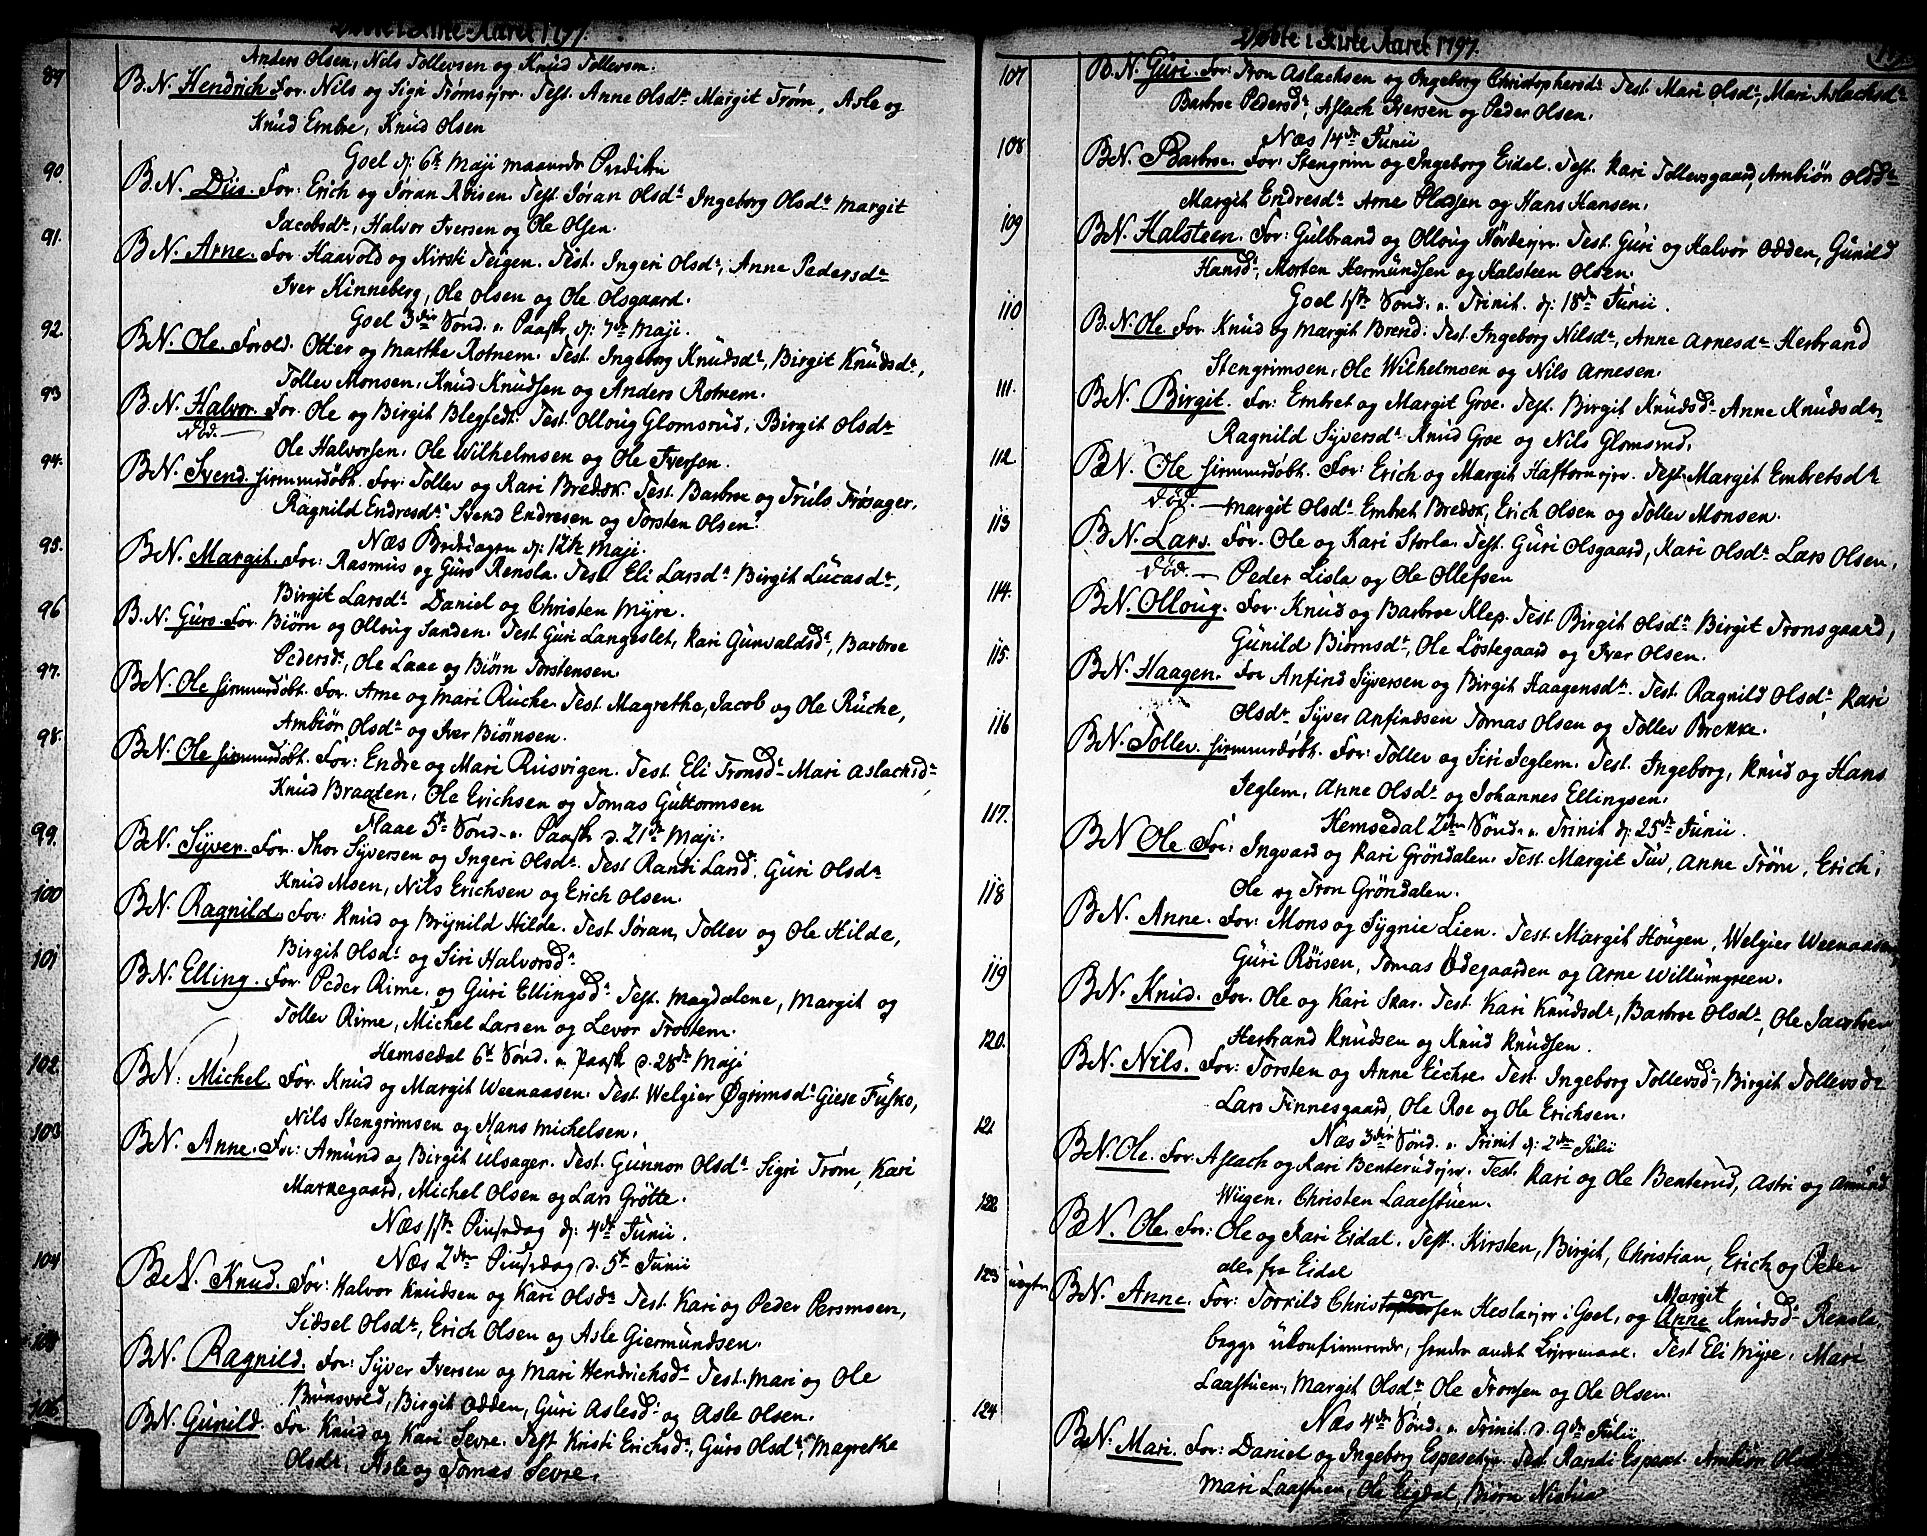 Døbte i Kirke-Aaret 1797.
Anders Olsen, Nils Tollevsen og Knud Tollevsen.
89 B.N. Hendrich For. Nils og Sigri Trømsejer. Test. Anne Olsdr Margit Trøm, Asle og
Knud Embre, Knud Olsen
Goel d: 6te Maji maaneds Prediken
90. B.N. Düs. For: Erich og Jöran Röisen. Test Jöran Olsdr Ingeborg Olsdr Margit
Jacobsdr, Halvor Iversen og Ole Olsen.
91. B.N. Arne. For Haavold og Kirsti Teigen. Test. Ingeri Olsdr, Anne Pedersdr
Iver Kinneberg, Ole Olsen og Ole Olsgaard.
Goel 3die Sönd. e. Paaske d: 7de Maji.
92. B.N. Ole. Forold. Otter og Marthe Rotnem. Test. Ingeborg Knudsdr, Birgit Knudsdr,
Tollev Monsen, Knud Knudsen og Anders Rotnem.
93 B.N. Halvor For. Ole og Birgit Bleyfedt. Test. Olloug Glomsrud, Birgit Olsdr
Död.
Ole Halvorsen, Ole Wilhelmsen og Ole Iversen.
94. BN. Svend hjemmedöbt. For: Tollev og Kari Bredsk. Test. Barbroe og Truls Trösager,
Ragnild Endresdr Svend Endresen og Torsten Olsen.
Næs Bededagen d: 12te Maji.
95. BN. Margit. For: Rasmus og Guro Rensla. Test. Eli Larsdr Birgit Lucasdr,
Birgit Larsdr Daniel og Christen Myre.
96 B.N. Guro. For. Biörn og Olloug Sanden. Test Guri Langeslet, Kari Gunvaldsdr, Barbroe
Pedersdr, Ole Laae og Biörn Torstensen.
97. BN. Ole hjemmedöbt. For. Arne og Mari Ruche. Test Magrethe, Jacob og Ole Ruche,
Ambiör Olsdr og Iver Biörnsen.
98. BN. Ole hjemmedöbt. For: Endre og Mari Rusvigen. Test. Eli Tronsdr Mari Aslachsdr,
Knud Braaten, Ole Erichsen og Tomas Guttormsen
Flaae 5te Sönd. e. Paaske d. 21de Maji.
99. BN. Syver. For. Thor Syversen og Ingeri Olsdr. Test Randi Land, Guri Olsdr
Knud Alsen, Nils Erichsen og Erich Olsen.
100 BN. Ragnild. For: Knud og Brynild Hilde. Test Jöran, Tollev og Ole Hilde,
Birgit Olsdr og Siri Halvorsdr
101 BN. Elling. For. Peder Rime. og Guri Ellingsdr Test. Magdalene, Margit og
Tollev Rime, Michel Larsen og Levor Trostem.
Hemsedal 6te Sönd. e. Paask d. 28de Maji
102. BN. Michel. For. Knud og Margit Weenaasen. Test. Welgier Øgrimsdr Giese Fusko,
Nils Stengrimsen og Hans Michelsen.
103 BN. Anne. For: Amund og Birgit Ulsager. Test. Gunnor Olsdr Sigri Tröm, Kari
Markegaard, Michel Olsen og Lars Grötte.
Næs 1ste Pinsedag d: 4de Junii.
Næs 2den Pinsedag d. 5te Junii
104 BN. Knud. For: Halvor Knudsen og Kari Olsdr Test. Kari og Peder Persmoen,
Sidsel Olsdr, Erich Olsen og Asle Giermundsen.
105 BN. Ragnild. For: Syver Iversen og Mari Hendrichsdr Test. Mari og Ole
Brunsvold, Birgit Odden, Guri Aslesdr og Asle Olsen.
106 BN. Gunild. For Knud og Kari Sevre. Test Kristi Erichsdr, Guro Olsdr, Magrethe
Olsdr. Asle og Tomas Sevre.
Döbte i Kirke Aaret 1797.
107 B.N. Guri. For: Tron Aslachsen og Ingeborg Christophersdr Test. Mari Olsdr, Mari Aslachsdr
Barbroe Pedersdr, Aslach Iversen og Peder Olsen.
Næs 14de Junii
108 BN. Barbroe. For: Stengrim og Ingeborg Eidal. Test. Kari Tollevsgaard, Ambiör Olsdr
Margit Endresdr Arne Pladsen og Hans Hansen.
109 BN. Halsteen. For: Gulbrand og Olloug Növdeejer. Test. Guri og Halvor Odden, Gunild
Hansdr, Morten Hermundsen og Halsteen Olsen.
Goel 1ste Sönd. e. Trinit. d: 18de Junii.
110 B.N. Ole For Knud og Margit Brend: Test. Ingeborg Nilsdr, Anne Arnesdr Herbrand
Stengrimsen, Ole Wilhelmsen og Nils Arnesen.
111. BN. Birgit. For: Embret og Margit Groe. Test. Birgit Knudsdr Anne Knudsdr,
Ragnild Syversdr Knud Groe og Nils Glomsrud.
112 BN. Ole hjemmedöbt. For: Erich og Margit Haftornejer. Test. Margit Embretsdr
Död. Margit Olsdr Embret Bredsk, Erich Olsen og Tollev Monsen.
113 BN. Lars. For. Ole og Kari Storla. Test. Guri Olsgaard, Kari Olsdr Lars Olsen,
Död. Peder Lisla og Ole Ollefsen
114. BN. Olloug. For: Knud og Barbroe Klep. Test Birgit Olsdr Birgit Tronsgaard,
Gunild Biörnsdr, Ole Löstegaard og Iver Olsen.
115. BN. Haagen. For Anfind Syversen og Birgit Haagensdr. Test. Ragnild Olsdr, Kari
Olsdr. Syver Anfindsen Tomas Olsen og Tollev Brekke.
116 BN. Tollev. hjemmedöbt. For: Tollev og Siri Jeglem. Test. Ingeborg, Knud og Hans
Jeglem, Anne Olsdr og Johannes Ellingsen.
Hemsedal 2den Sönd. e. Trinit d: 25de Junii.
117. BN Ole For: Ingvard og Kari Gröndalen. Test. Margit Tuv, Anne Tröm, Erich,
Ole og Tron Gröndalen.
118 BN. Anne. For: Mons og Sygnie Lien. Test. Margit Hougen, Welgier Weenaasen,
Guri Röisen, Tomas Ödegaarden og Arne Willumgreen.
119 BN. Knud. For. Ole og Kari Skar. Test. Kari Knudsdr, Barbroe Olsdr, Ole Jacobsen,
Herbrand Knudsen og Knud Knudsen.
120. BN. Nils. For: Torsten og Anne Eichre. Test. Ingeborg Tollevsdr, Birgit Tollevsdr
Lars Finnesgaard, Ole Roe og Ole Erichsen.
Næs 3die Sönd. e. Trinit d: 2den Julii
121 BN. Ole. For. Aslach og Kari Benterudejer. Test. Kari og Ole Benterud, Astri og Amund
Wiigen. Christen Laaestuen.
122 BN. Ole. For: Ole og Kari Eidal. Test. Kirsten, Birgit, Christian, Erich og Peder
alle fra Eidal
123 uægte BN. Anne. For: Torkild Christophersen Heslaejer i Goel, og Anne Margit Knudsdr Rensla,
begge ukonfirmerede, hendes andet Leiermaal. Test Eli Myre, Mari
Laastuen, Margit Olsdr Ole Tronsen og Ole Olsen.
Næs 4de Sönd. e. Trinit. d. 9de Julii.
124 BN. Mari. For: Daniel og Ingeborg Espesetejer. Test. Randi Espeset. Ambiör Olsdr
Mari Laastuen, Ole Eigdal, Biörn Nistuen